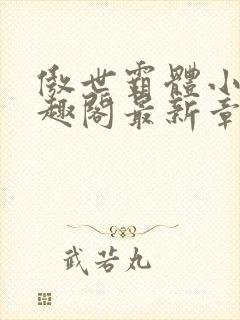 傲世霸體小
趣閣最新章
武苦丸